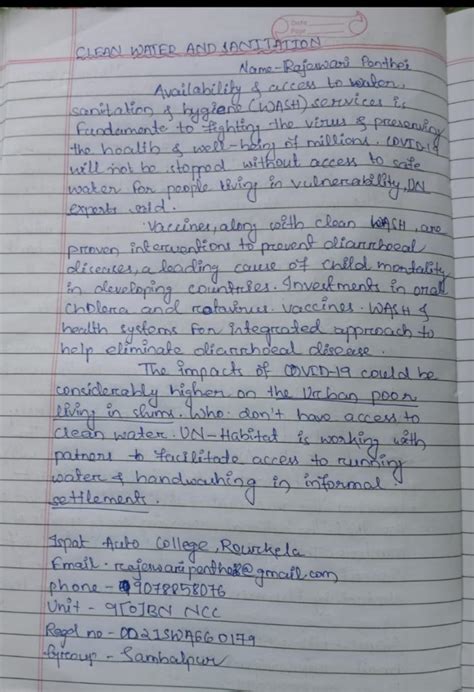 Date
Page
CLEAN WATER AND SANITATION
Name-Rajeswari Panthei
Availability & access to water,
sanitation & hygiene (WASH) services is
Fundamente to fighting the virus & preserving
the health & well-being of millions. COVID-19
will not be stopped without access to safe
water for people living in vulnerability, UN
experts said.
Vaccines, along with clean WASH, are
proven interventions to prevent diarrhoeal
diseases, a leading cause of child mortality
in developing countries. Investments in oral
cholera and rotavirus vaccines. WASH &
health systems for integrated approach to
help eliminate diarrhoeal disease.
The impacts of COVID-19 could be
considerably higher on the Urban poor
living in slums. Who don't have access to
clean water. UN-Habitat is working with
patners to facilitade access to running
water & handwashing in informal
settlements.
Ispat Auto College, Rourkela
Email - rajeswaripanthei@gmail.com
phone - 9078858076
Unit - 9TOIBN NCC
Regd no - OD21SWA660179
Group - Sambalpur